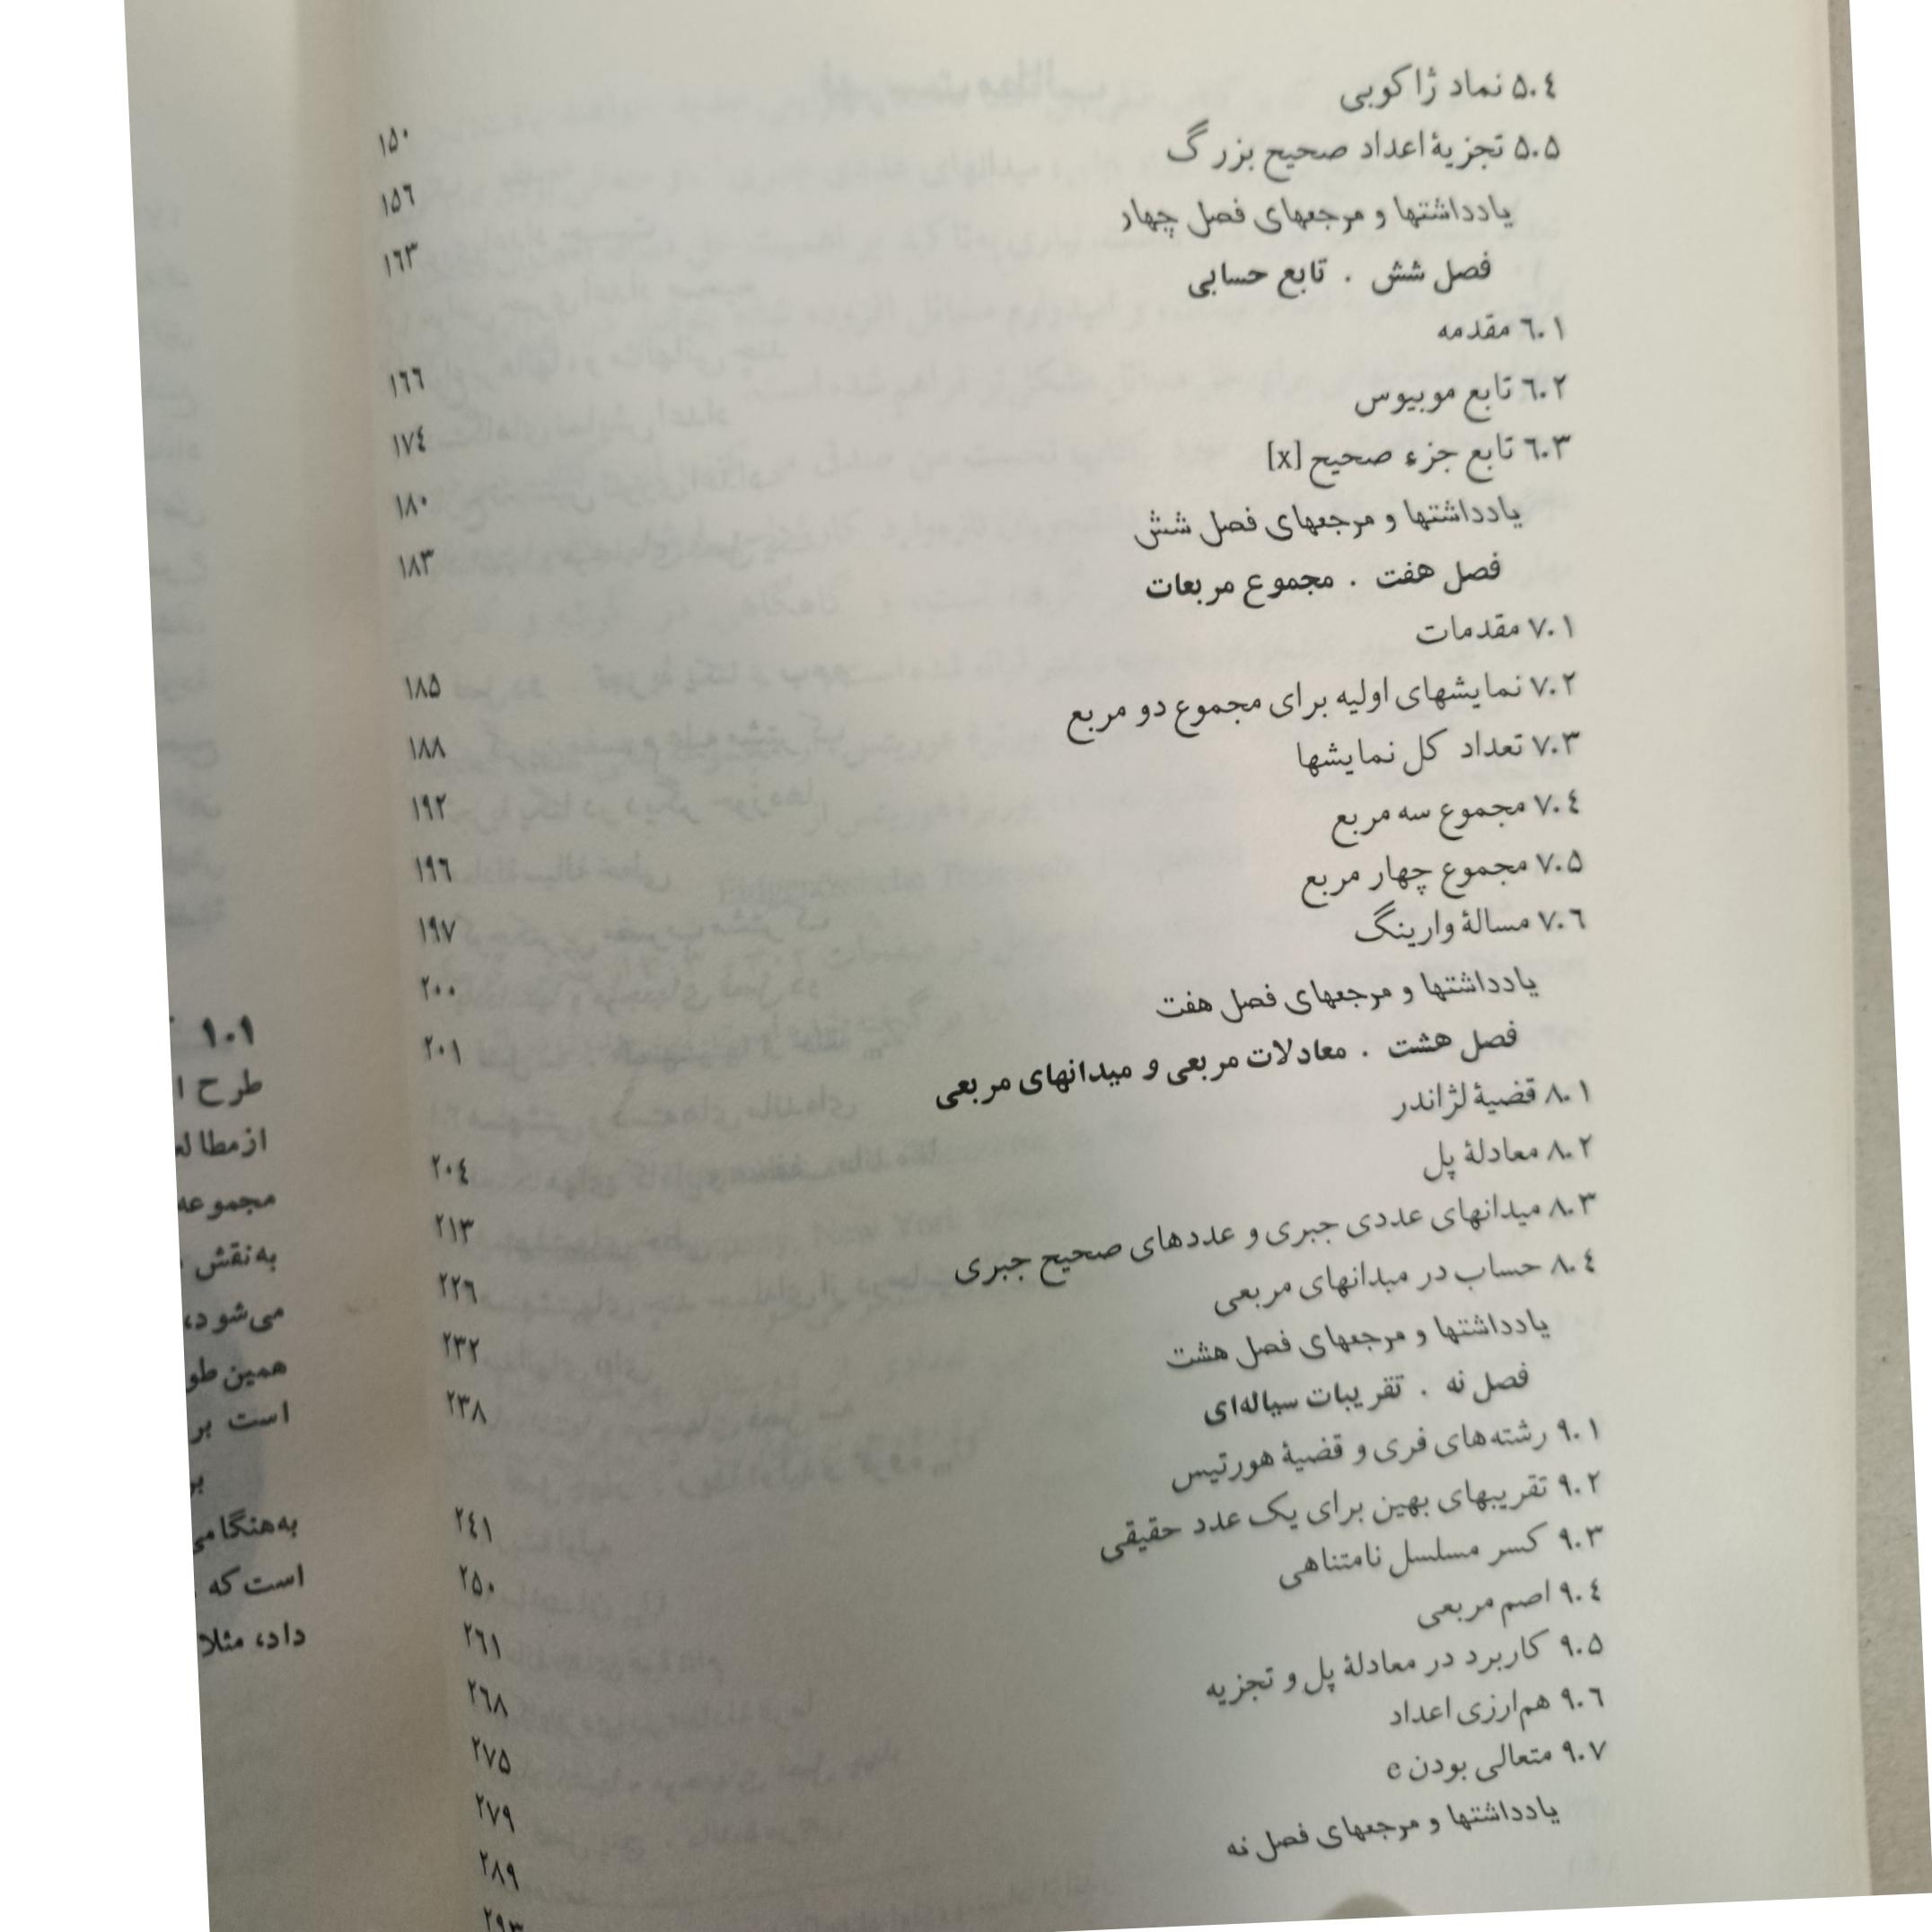 ۵.٤ نماد ژاکوبی ۱۵۰
۵.۵ تجزیهٔ اعداد صحیح بزرگ ۱۵٦
یادداشتها و مرجعهای فصل چهار ۱٦۳
فصل شش . تابع حسابی
٦.۱ مقدمه ۱٦٦
٦.۲ تابع موبیوس ۱۷٤
٦.۳ تابع جزء صحیح [x] ۱۸۰
یادداشتها و مرجعهای فصل شش ۱۸۳
فصل هفت . مجموع مربعات
۷.۱ مقدمات ۱۸۵
۷.۲ نمایشهای اولیه برای مجموع دو مربع ۱۸۸
۷.۳ تعداد کل نمایشها ۱۹۲
۷.٤ مجموع سه مربع ۱۹٦
۷.۵ مجموع چهار مربع ۱۹۷
۷.٦ مسالهٔ وارینگ ۲۰۰
یادداشتها و مرجعهای فصل هفت ۲۰۱
فصل هشت . معادلات مربعی و میدانهای مربعی
۸.۱ قضیهٔ لژاندر ۲۰٤
۸.۲ معادلهٔ پل ۲۱۳
۸.۳ میدانهای عددی جبری و عددهای صحیح جبری ۲۲٦
۸.٤ حساب در میدانهای مربعی ۲۳۲
یادداشتها و مرجعهای فصل هشت ۲۳۸
فصل نه . تقریبات سیاله‌ای
۹.۱ رشته‌های فری و قضیهٔ هورتیس ۲٤۱
۹.۲ تقریبهای بهین برای یک عدد حقیقی ۲۵۰
۹.۳ کسر مسلسل نامتناهی ۲٦۱
۹.٤ اصم مربعی ۲٦۸
۹.۵ کاربرد در معادلهٔ پل و تجزیه ۲۷۵
۹.٦ هم‌ارزی اعداد ۲۷۹
۹.۷ متعالی بودن e ۲۸۹
یادداشتها و مرجعهای فصل نه ۲۹۳
۱.۱
طرح
مجموعه
به‌نقش
می‌شود،
همین طو
است بر
به‌هنگامی
است که
داد، مثلا